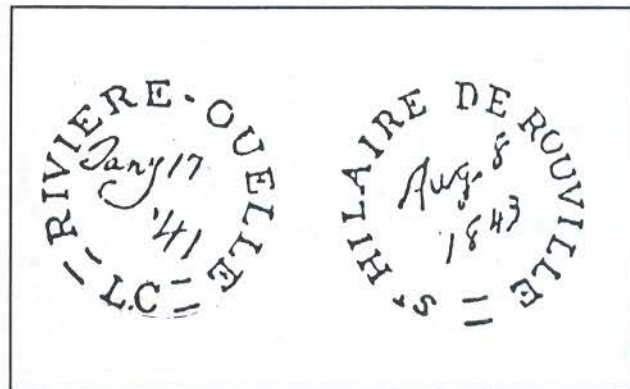 RIVIERE-OUELLE
L.C
Jany 17
'41
St HILAIRE DE ROUVILLE
Aug. 8
1843